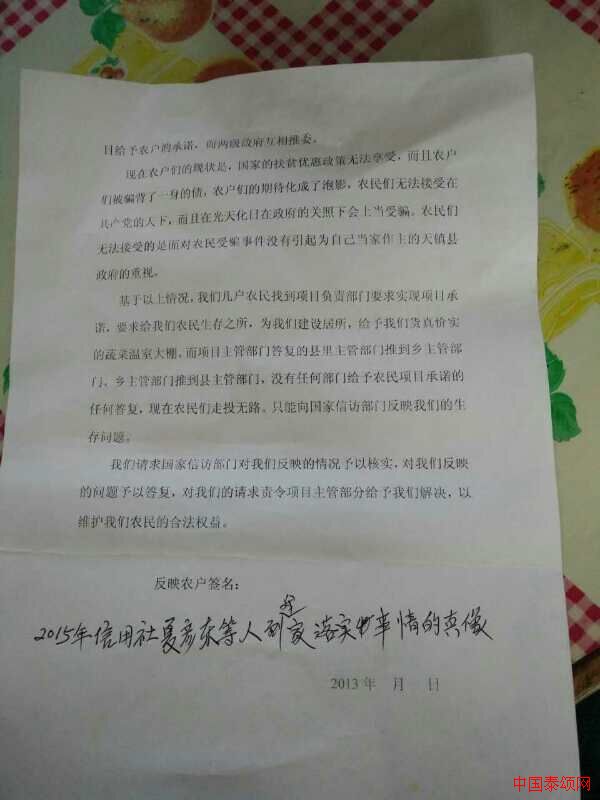 目给予农户的承诺，而两级政府互相推委。
现在农户们的现状是，国家的扶贫优惠政策无法享受，而且农户
们被骗背了一身的债，农户们的期待化成了泡影，农民们无法接受在
共产党的天下，而且在光天化日在政府的关照下会上当受骗。农民们
无法接受的是面对农民受骗事件没有引起为自己当家作主的天镇县
政府的重视。
基于以上情况，我们几户农民找到项目负责部门要求实现项目承
诺，要求给我们农民生存之所，为我们建设居所，给予我们货真价实
的蔬菜温室大棚。而项目主管部门答复的县里主管部门推到乡主管部
门、乡主管部门推到县主管部门，没有任何部门给予农民项目承诺的
任何答复，现在农民们走投无路。只能向国家信访部门反映我们的生
存问题。
我们请求国家信访部门对我们反映的情况予以核实，对我们反映
的问题予以答复，对我们的请求责令项目主管部分给予我们解决，以
维护我们农民的合法权益。
反映农户签名：
2015年信用社夏彦东等人到家落实事情的真像
2013 年 月 日
中国泰颂网